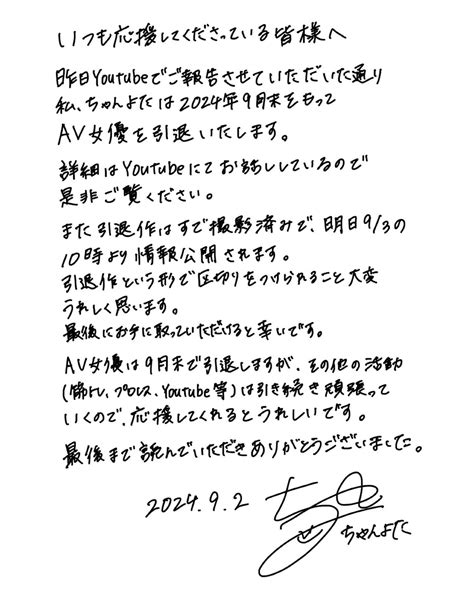 いつも応援してくださっている皆様へ
昨日Youtubeでご報告させていただいた通り
私、ちゃんよたは2024年9月末をもって
AV女優を引退いたします。
詳細はYoutubeにてお話ししているので
是非ご覧ください。
また引退作はすでに撮影済みで、明日9/3の
10時より情報公開されます。
引退作という形で区切りをつけられること大変
うれしく思います。
最後にお手に取っていただけると幸いです。
AV女優は9月末で引退しますが、その他の活動
(筋トレ、プロレス、Youtube等)は引き続き頑張って
いくので、応援してくれるとうれしいです。
最後まで読んでいただきありがとうございました。
2024.9.2
ちゃんよた